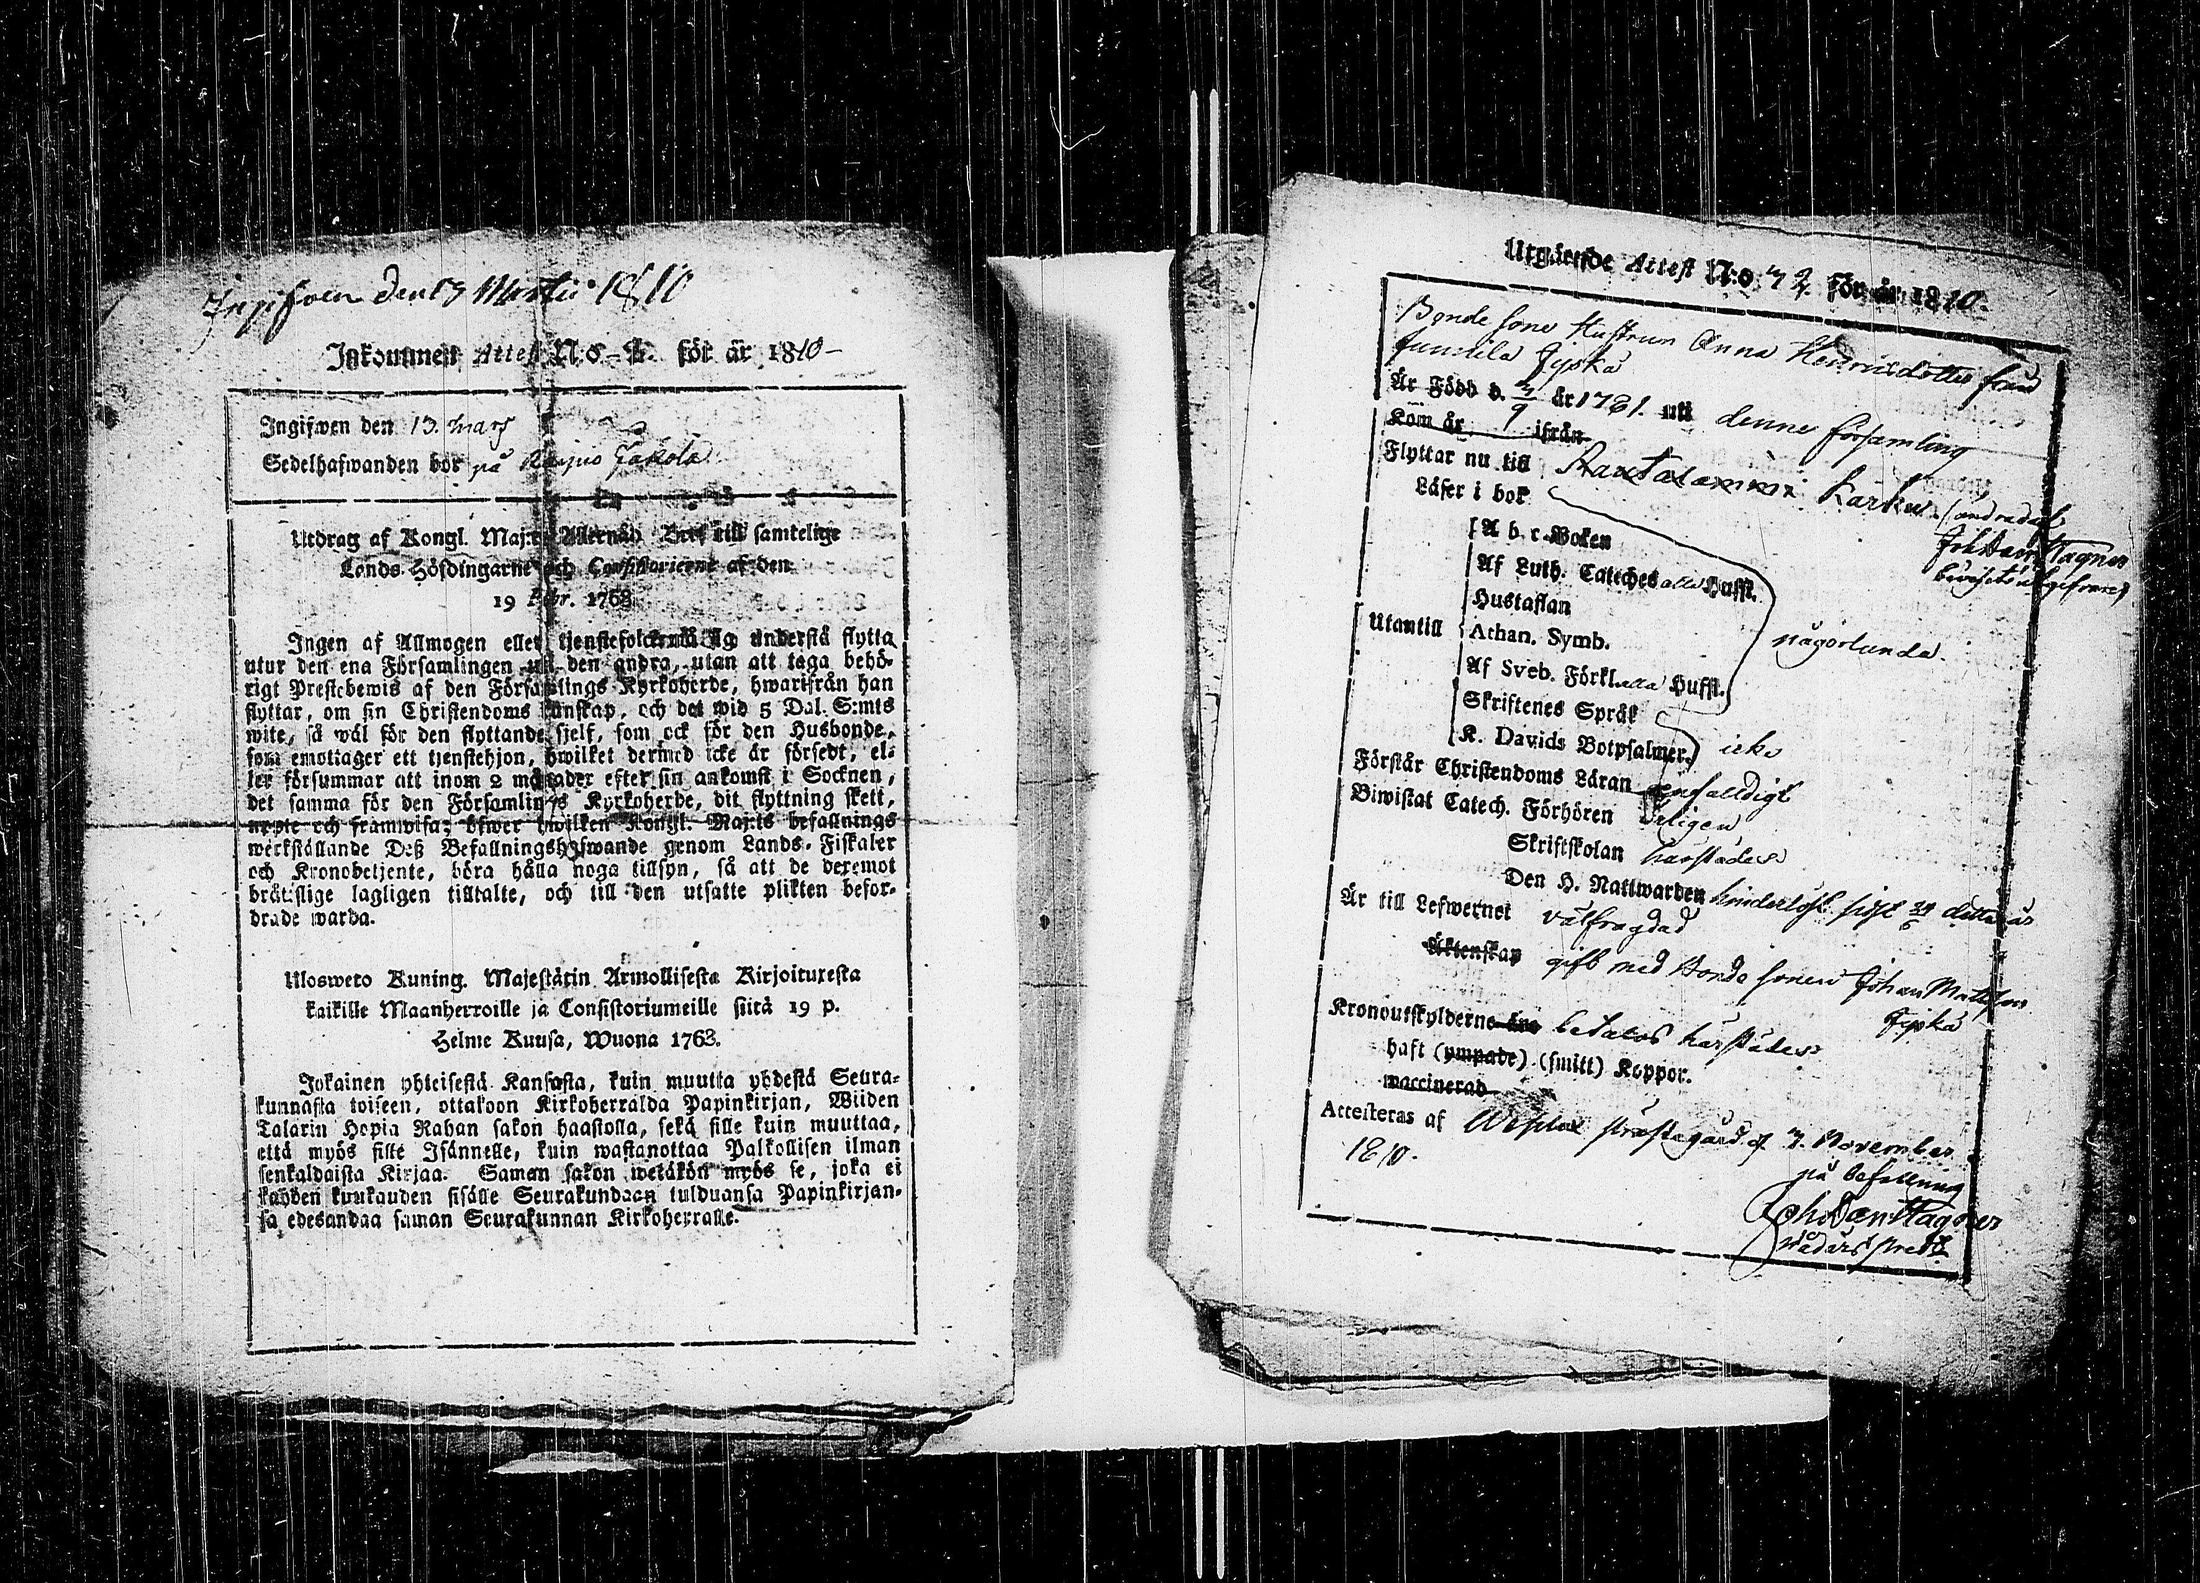 Ingifven den 13 Martii 1810
Inkommen Attest N:o för år 1810
Ingifwen den 13. Mars
Sedelhafwanden bor på
Utdrag af Kongl. Maj:ts Allernåd. Bref till samtelige
Lands-Höfdingarne och Consistorierne af den
19 Febr. 1763
Ingen af Allmogen eller tjenstefolcken må sig understå flytta
utur den ena Församlingen uti den andra, utan att taga behö-
rigt Prestebewis af den Församlings Kyrkoherde, hwarifrån han
flyttar, om sin Christendoms kunskap, och det wid 5 Dal. S:mts
wite, så wäl för den flyttande sjelf, som ock för den Husbonde,
som emottager ett tjenstehjon, hwilket dermed icke är försedt, el-
ler försummar att inom 2 månader efter sin ankomst i Socknen,
det samma för den Församlings Kyrkoherde, dit flyttning skett,
upte och framwisa; öfwer hwilken Kongl. Maj:ts befallnings
werkställande Deß Befallningshafwande genom Lands-Fiskaler
och Kronobetjente, böra hålla noga tillsyn, så att de deremot
brätslige lagligen tilltalte, och till den utsatte plikten befor-
drade warda.
Ulosweto Kuning. Majestätin Armollisesta Kirjoituxesta
kaikille Maanherroille ja Consistoriumeille siitä 19 p.
Helme Kuusa, Wuona 1763.
Jokainen yhteisestä Kansasta, kuin muutta yhdestä Seura-
kunnasta toiseen, ottakoon Kirkoherralda Papinkirjan, Wiiden
Talarin Hopia Rahan sakon haastolla, sekä sille kuin muuttaa,
että myös sille Isännelle, kuin wastanottaa Palkollisen ilman
senkaldaista Kirjaa. Saman sakon wetäkön myös se, joka ei
kahden kuukauden sisälle Seurakundaan tulduansa Papinkirjan-
sa edesandaa saman Seurakunnan Kirkoherralle.
Utgående Attest N:o 72 för år 1810.
Bonde sone Hustrun Anna Henricsdotter från
Är Född d. 7/9 år 1781. uti denne församling
Kom år ifrån
Flyttar nu till Rautalammi Karku
Läser i bok
A b c-Boken
Af Luth. Cateches alla Hufft.
Hustaflan
Utantill
Athan. Symb.
någorlunda.
Af Sveb. Förkl. alla Hufft.
Skriftenes Språk
K. Davids Botpsalmer. icke
Förstår Christendoms Läran enfalldigt
Biwistat Catech. Förhören årligen
Skriftskolan härstädes
Den H. Nattwarden hinderlöst sist detta år
Är till Lefwernet välfrägdad
Äktenskap gift med Bonde sonen Johan Matsson
Kronoutskylderne äro betalas härstädes
haft (ympade) (smitt) Koppor.
waccinerad
Attesteras af prästegård d 7. November
1810.
på befallning
Joh Dan Wagner